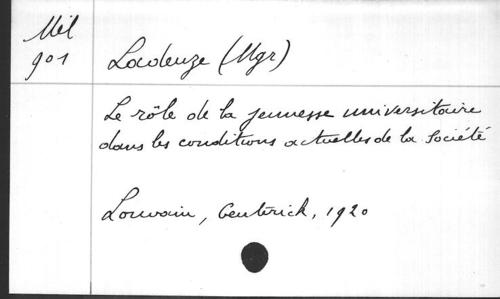 Mél
901
Ladeuze (Mgr)
Le rôle de la jeunesse universitaire
dans les conditions actuelles de la Société
Louvain, Ceuterick, 1920